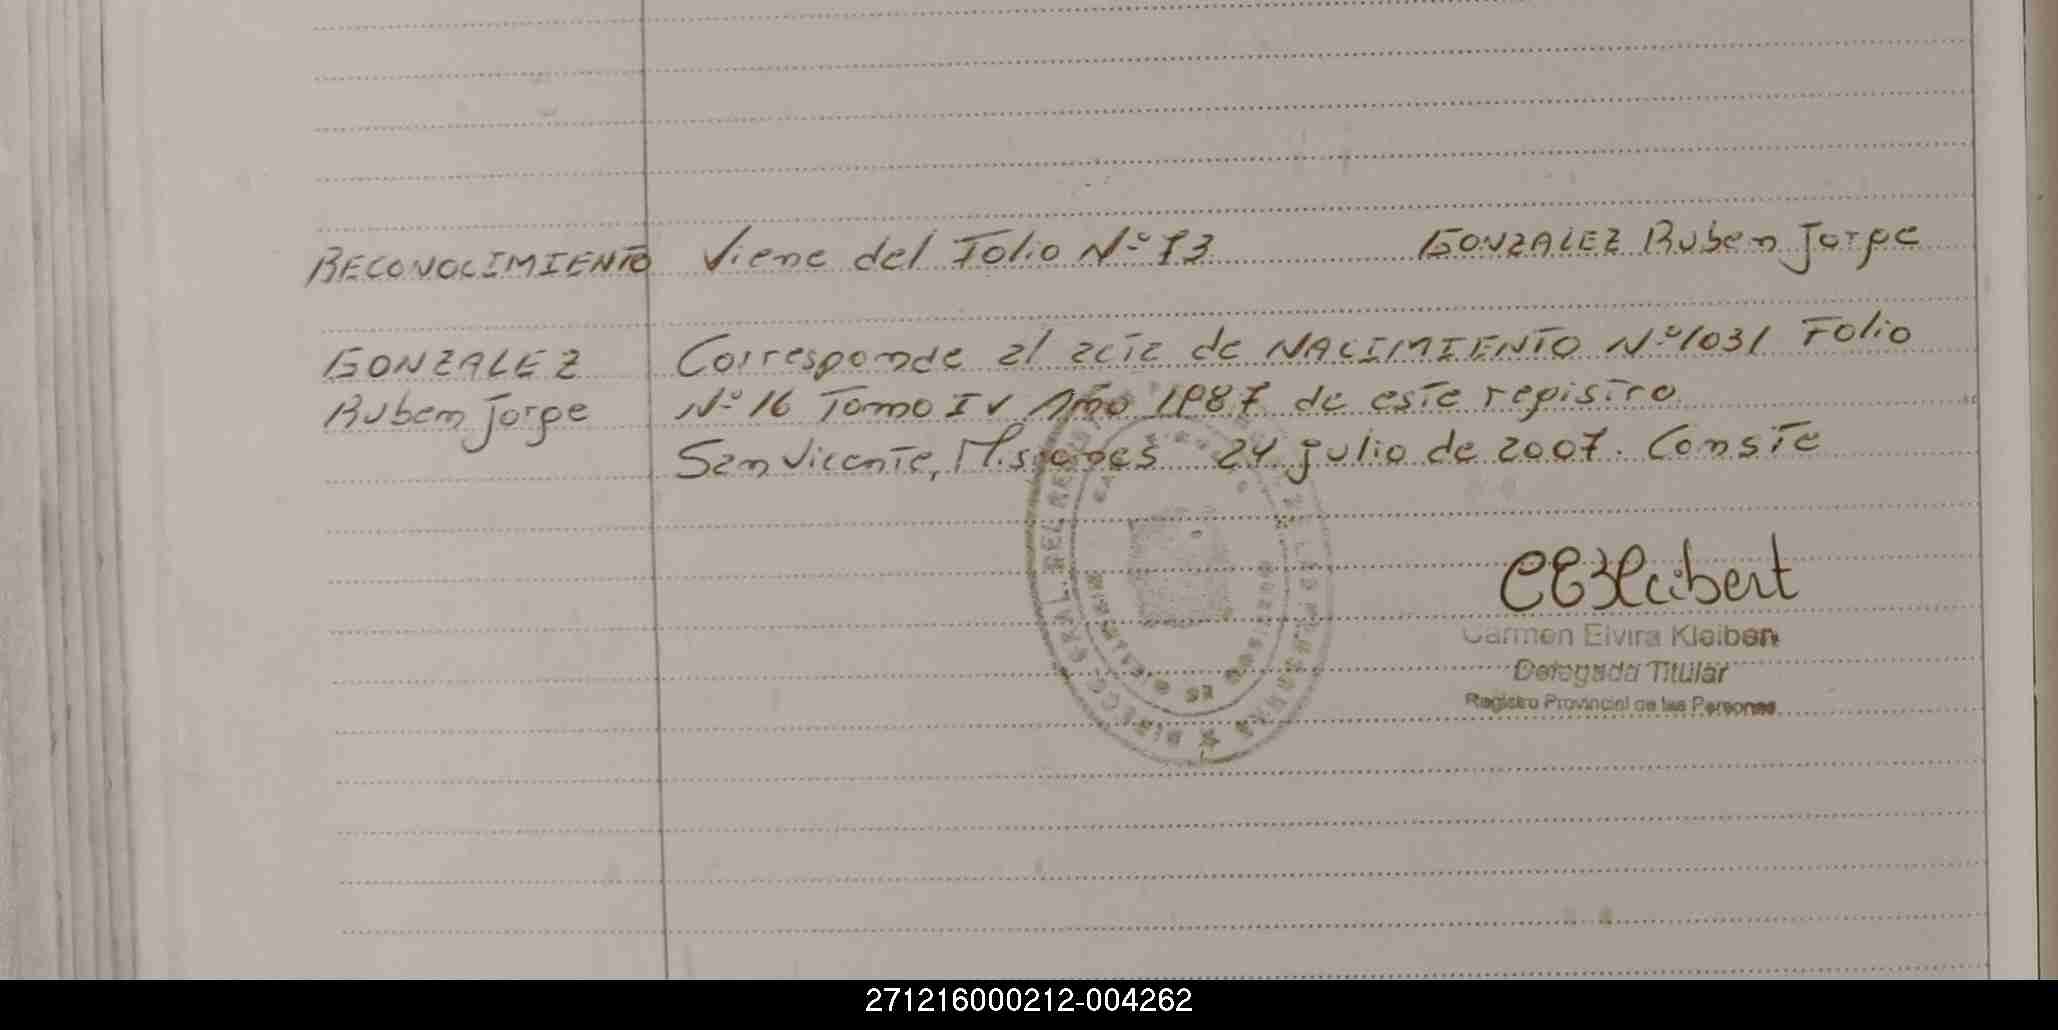 RECONOCIMIENTO Viene del Folio Nº 73 GONZALEZ Ruben Jorge
GONZALEZ Corresponde al acta de NACIMIENTO Nº 1031 Folio
Ruben Jorge Nº 16 Tomo IV Año 1987 de este registro
San Vicente, Misiones 24 julio de 2007. Conste
Carmen Elvira Kleibert
Delegada Titular
Registro Provincial de las Personas
271216000212-004262